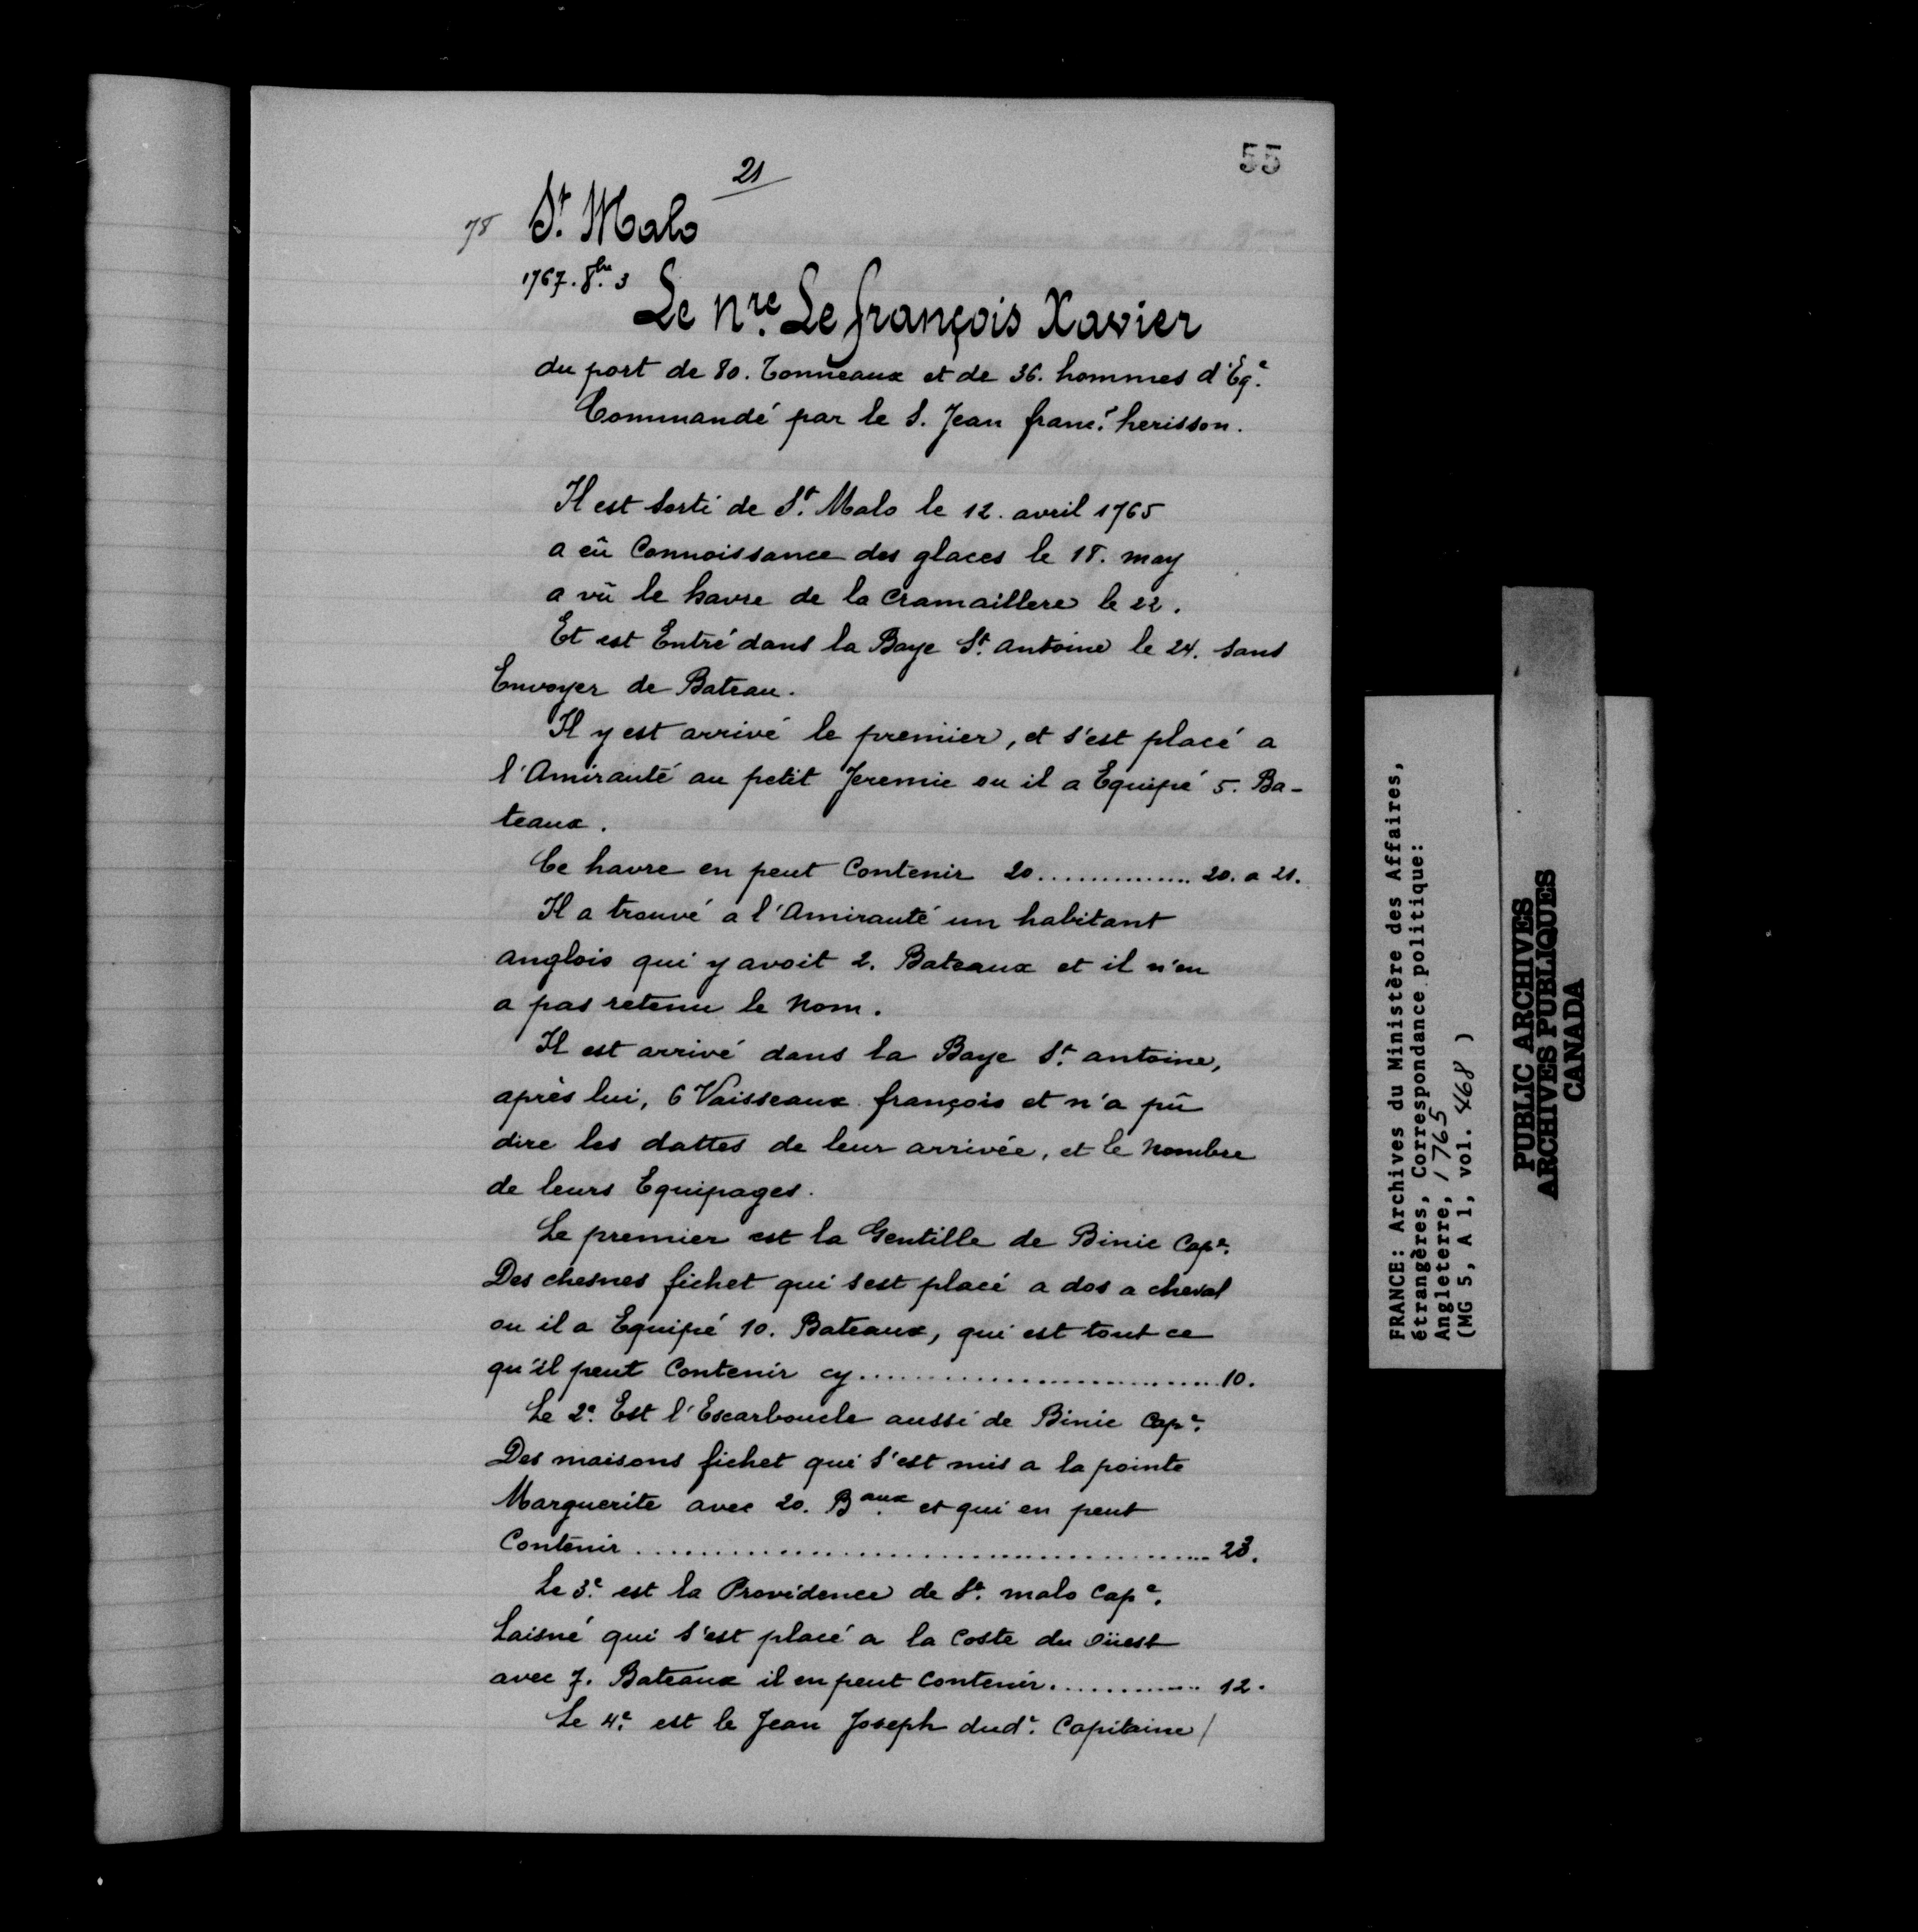 55
21
78 St. Malo
1767. 8bre. 3
Le nre. Le françois Xavier
du port de 80. Tonneaux et de 36. hommes d'Eqe.
Commandé par le S. Jean franc.s herisson.
Il est sorti de St. Malo le 12. avril 1765
a eû Connoissance des glaces le 18. may
a vû le havre de la Cramaillere le 22.
Et est Entré dans la Baye St. Antoine le 24. sans
Envoyer de Bateau.
Il y est arrivé le premier, et s'est placé a
l'Amirauté au petit Jeremie ou il a Equipé 5. Ba-
teaux.
Ce havre en peut Contenir 20 ............... 20. a 21.
Il a trouvé a l'Amirauté un habitant
anglois qui y avoit 2. Bateaux et il n'en
a pas retenu le nom.
Il est arrivé dans la Baye St. antoine,
après lui, 6 Vaisseaux françois et n'a pû
dire les dattes de leur arrivée, et le nombre
de leurs Equipages.
Le premier est la Gentille de Binic Cape.
Des chesnes fichet qui s'est placé a dos a cheval
ou il a Equipé 10. Bateaux, qui est tout ce
qu'il peut Contenir cy .............................. 10.
Le 2e. Est l'Escarboucle aussi de Binic Cape.
Des maisons fichet qui s'est mis a la pointe
Marguerite avec 20. Baux. et qui en peut
Contenir .................................................. 23.
Le 3e. est la Providence de St. malo Cape.
Laisné qui s'est placé a la Coste du oüest
avec 7. Bateaux il en peut Contenir .............. 12.
Le 4e. est le Jean Joseph dudt. Capitaine /
FRANCE: Archives du Ministère des Affaires,
étrangères, Correspondance politique:
Angleterre, 1765
(MG 5, A 1, vol. 468 )
PUBLIC ARCHIVES
ARCHIVES PUBLIQUES
CANADA